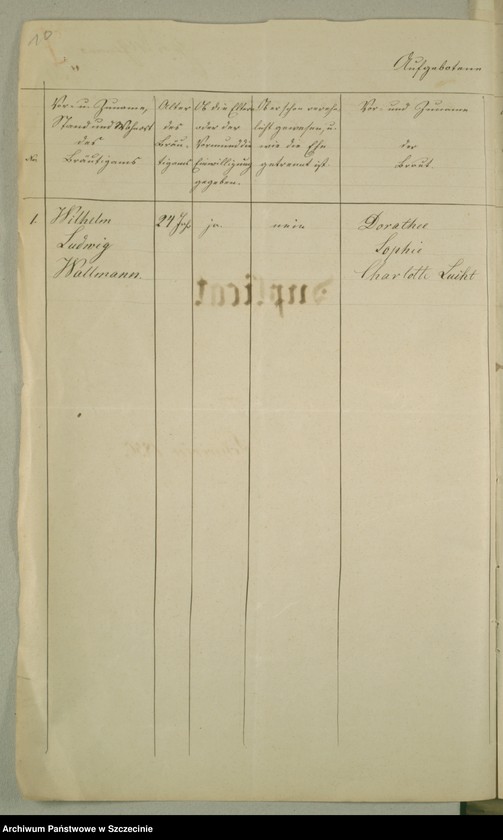 10
Aufgebotene
No.
Vor- u. Zuname,
Stand und Wohnort
des
Bräutigams
Alter
des
Bräu-
tigams
Ob die Eltern
oder der
Vormund die
Einwilligung
gegeben.
Ob er schon verehe-
licht gewesen, u.
wie die Ehe
getrennt ist
Vor- und Zuname
der
Braut.
1.
Wilhelm
Ludwig
Wallmann.
24 Jahr
ja
nein
Dorothee
Sophie
Charlotte
Duplicat
Archiwum Państwowe w Szczecinie